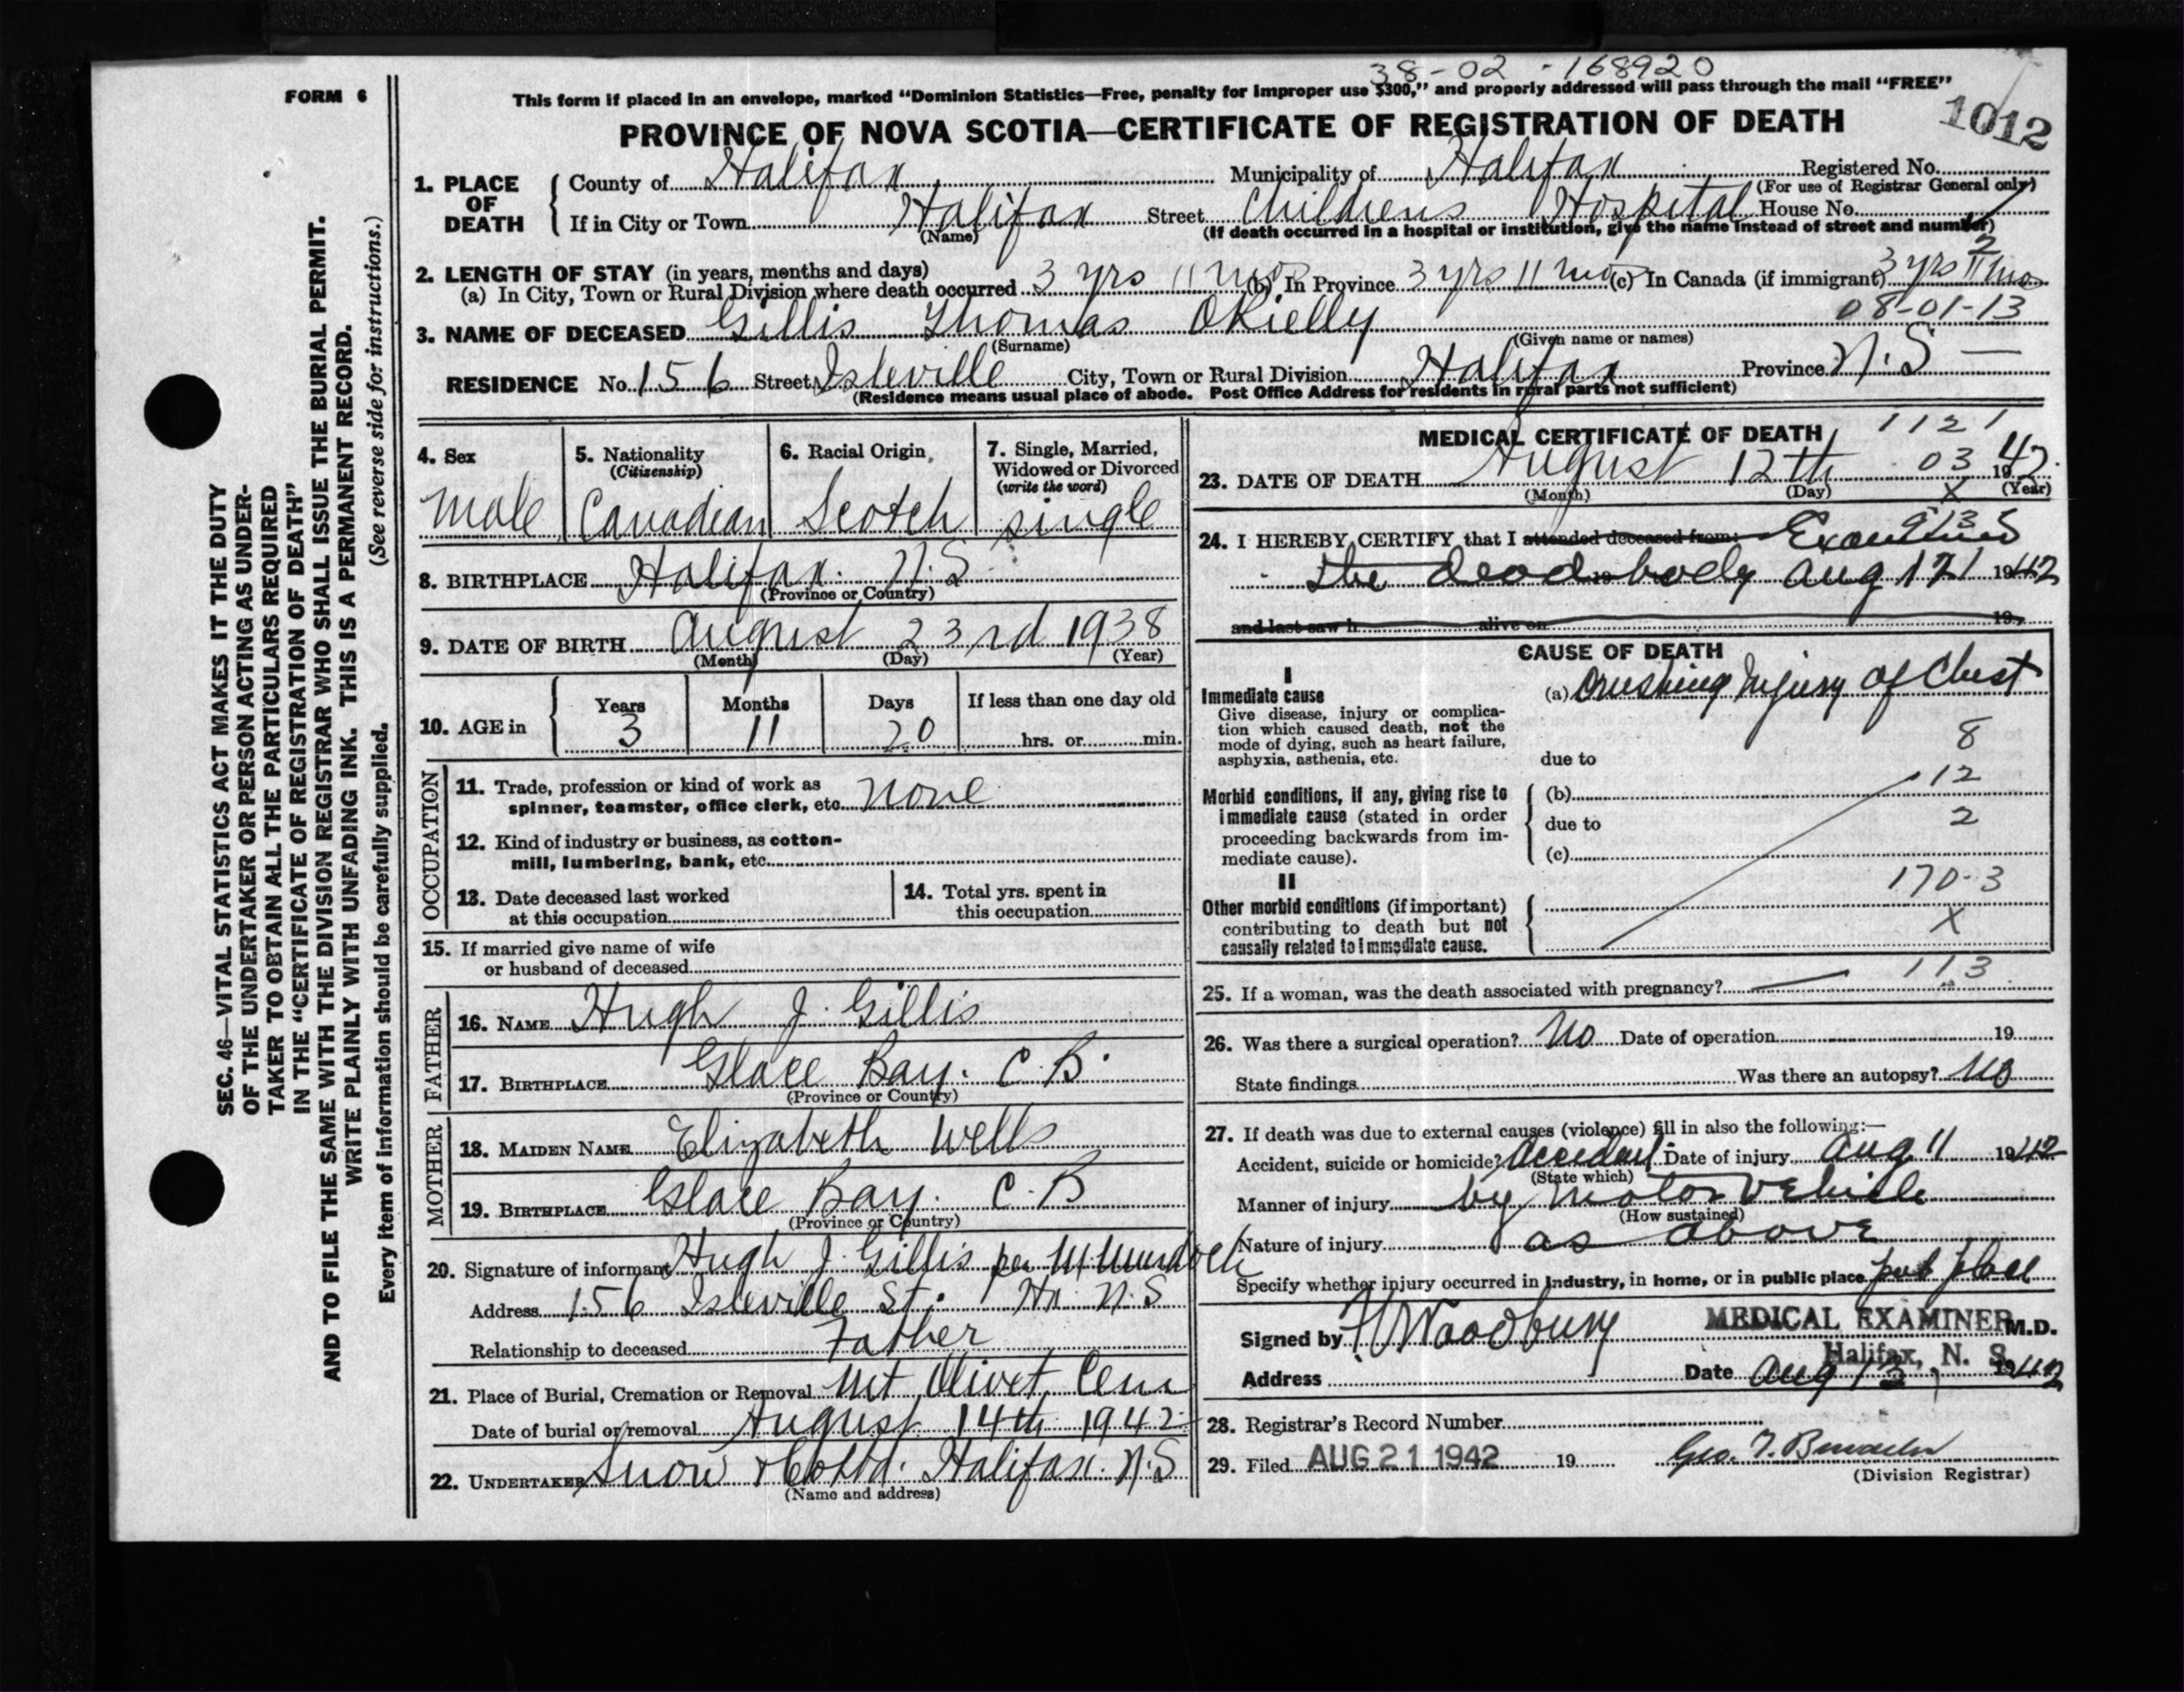 38-02-168920
FORM 6
This form if placed in an envelope, marked "Dominion Statistics—Free, penalty for improper use $300," and properly addressed will pass through the mail "FREE"
PROVINCE OF NOVA SCOTIA—CERTIFICATE OF REGISTRATION OF DEATH
1012
1. PLACE OF DEATH
County of Halifax Municipality of Halifax Registered No.
(For use of Registrar General only)
If in City or Town Halifax Street Childrens Hospital House No.
(Name) (If death occurred in a hospital or institution, give the name instead of street and number)
2
2. LENGTH OF STAY (in years, months and days)
(a) In City, Town or Rural Division where death occurred 3 yrs 11 mos (b) In Province 3 yrs 11 mos (c) In Canada (if immigrant) 3 yrs 11 mo
08-01-13
3. NAME OF DECEASED Gillis Thomas OKielly
(Surname) (Given name or names)
RESIDENCE No. 156 Street Isleville City, Town or Rural Division Halifax Province N.S —
(Residence means usual place of abode. Post Office Address for residents in rural parts not sufficient)
4. Sex
male
5. Nationality
(Citizenship)
Canadian
6. Racial Origin
Scotch
7. Single, Married,
Widowed or Divorced
(write the word)
single
8. BIRTHPLACE Halifax. N.S
(Province or Country)
9. DATE OF BIRTH August 23rd 1938
(Month) (Day) (Year)
10. AGE in
Years Months Days If less than one day old
3 11 20 hrs. or min.
OCCUPATION
11. Trade, profession or kind of work as
spinner, teamster, office clerk, etc. none
12. Kind of industry or business, as cotton-
mill, lumbering, bank, etc.
13. Date deceased last worked
at this occupation
14. Total yrs. spent in
this occupation
15. If married give name of wife
or husband of deceased
FATHER
16. NAME Hugh J. Gillis
17. BIRTHPLACE Glace Bay. C.B.
(Province or Country)
MOTHER
18. MAIDEN NAME Elizabeth Wells
19. BIRTHPLACE Glace Bay. C.B
(Province or Country)
20. Signature of informant Hugh J. Gillis per M Murdoch
Address 156 Isleville St. Hx N.S
Relationship to deceased Father
21. Place of Burial, Cremation or Removal Mt Olivet Cem
Date of burial or removal August 14th 1942
22. UNDERTAKER Snow & Co Ltd. Halifax. N.S
(Name and address)
MEDICAL CERTIFICATE OF DEATH
1121
03
23. DATE OF DEATH August 12th 1942.
(Month) (Day) (Year)
X
24. I HEREBY CERTIFY that I attended deceased from: Examined
the dead body Aug 121 1942
and last saw h alive on 19
CAUSE OF DEATH
I
Immediate cause
Give disease, injury or complica-
tion which caused death, not the
mode of dying, such as heart failure,
asphyxia, asthenia, etc.
(a) Crushing Injury of Chest
8
due to
12
Morbid conditions, if any, giving rise to
immediate cause (stated in order
proceeding backwards from im-
mediate cause).
(b)
due to
2
(c)
II
170-3
Other morbid conditions (if important)
contributing to death but not
causally related to immediate cause.
X
113
25. If a woman, was the death associated with pregnancy? —
26. Was there a surgical operation? No Date of operation 19
State findings Was there an autopsy? No
27. If death was due to external causes (violence) fill in also the following:—
Accident, suicide or homicide? Accident Date of injury Aug 11 1942
(State which)
Manner of injury by motor vehicle
(How sustained)
Nature of injury as above
Specify whether injury occurred in industry, in home, or in public place pub place
Signed by Woodbury MEDICAL EXAMINER M.D.
Halifax, N. S.
Address Date Aug 13 1942
28. Registrar's Record Number
29. Filed AUG 21 1942 19 Geo. T.
(Division Registrar)
SEC. 46—VITAL STATISTICS ACT MAKES IT THE DUTY
OF THE UNDERTAKER OR PERSON ACTING AS UNDER-
TAKER TO OBTAIN ALL THE PARTICULARS REQUIRED
IN THE "CERTIFICATE OF REGISTRATION OF DEATH"
AND TO FILE THE SAME WITH THE DIVISION REGISTRAR WHO SHALL ISSUE THE BURIAL PERMIT.
WRITE PLAINLY WITH UNFADING INK. THIS IS A PERMANENT RECORD.
(See reverse side for instructions.)
Every item of information should be carefully supplied.